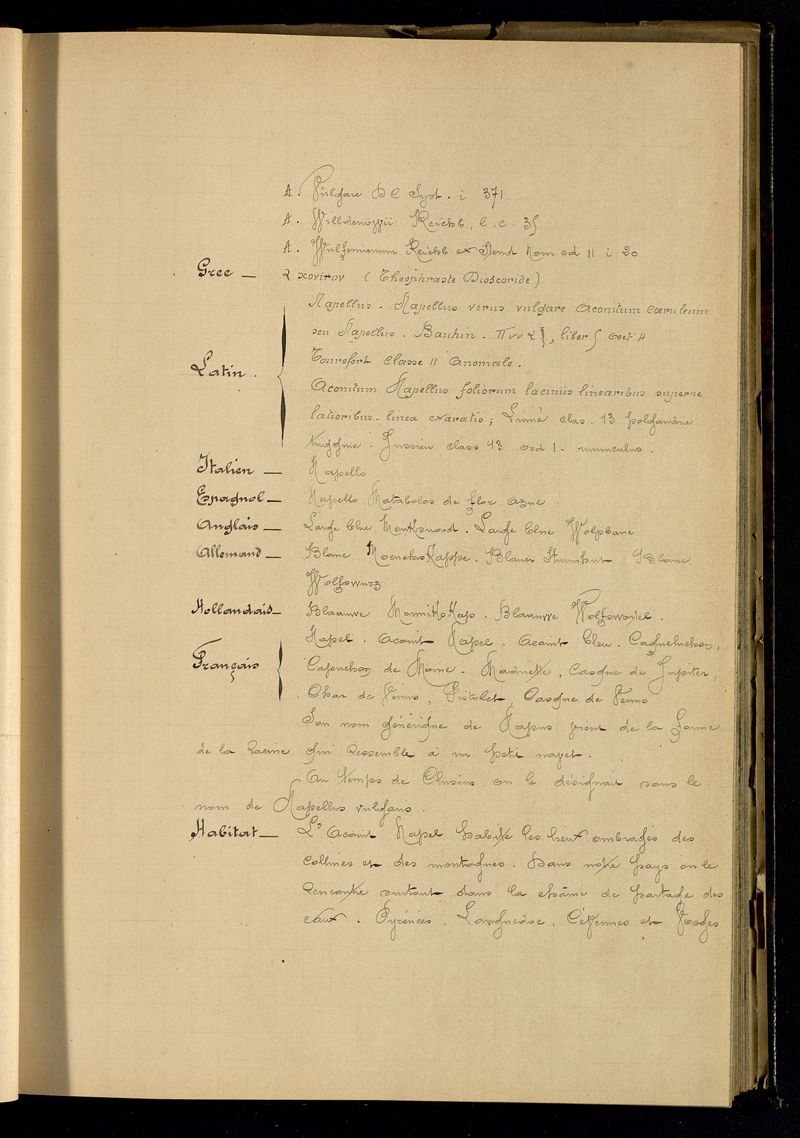 A. Vulgare DC Syst. i 371
A. Willdenowii Reichb. l. c. 35
A. Wulfenianum Reichb ex Stend Nom ed II i 20
Grec — (Théophraste Dioscoride)
Napellus - Napellus verus vulgare Aconitum cœruleum
seu Napellus. Bauhin - liber 5 sect 4
Tournefort classe 11 anomale.
Latin. Aconitum Napellus foliorum laciniis linearibus superne
latioribus. linea exaratis; Linné clas. 13 polyandrie
Jussieu class 13 ord 1. renunculus.
Italien — Napello
Espagnol — Napello Matabolos de flor azue
Anglais — Large blue Monkswood. Large blue Wolpbane
Allemand — Blane MoencksKappe. Blaues Blane
Wolfswurz
Hollandais — Blaauwe MonniksKap. Blaauwe Wolfswortel.
Napel. Aconit Napel. Aconit bleu. Coqueluchon,
Français Capuchon de Moine. Madriette, Casque de Jupiter,
Char de Vénus, Pistolet, Casque de Venus
Son nom générique de Napus vient de la forme
de la Racine qui Ressemble à un petit navet.
Au temps de Clusius on le désignait sous le
nom de Napellus vulgaris.
Habitat — L'Aconit Napel habite les lieux ombragés des
collines et des montagnes. Dans notre pays on le
Rencontre surtout dans la chaîne de partage des
eaux. Pyrénées, Languedoc, Cévennes et Vosges